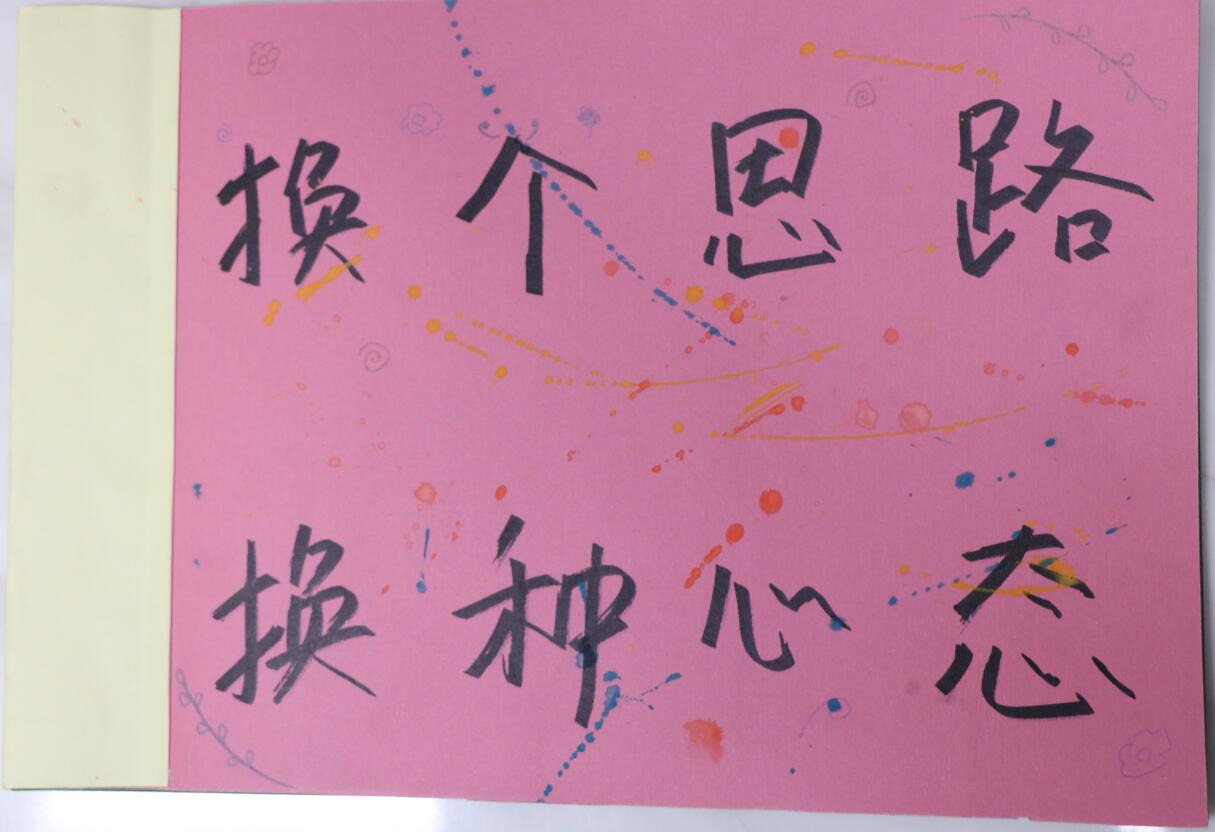 换个思路
换种心态